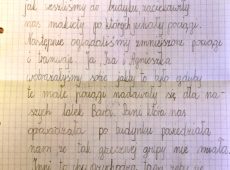 jak weszliśmy do budynku zaciekawiły
nas makiety po których jechały pociągi.
Następnie oglądaliśmy zmniejszone pociągi
i tramwaje. Ja, Iza i Agnieszka
wyobrażałyśmy sobie jakby to było gdyby
te małe pociągi nadawały się dla na-
szych lalek Barbi. Pani która nas
oprowadzała po budynku powiedziała
nam że tak grzecznej grupy nie miała.